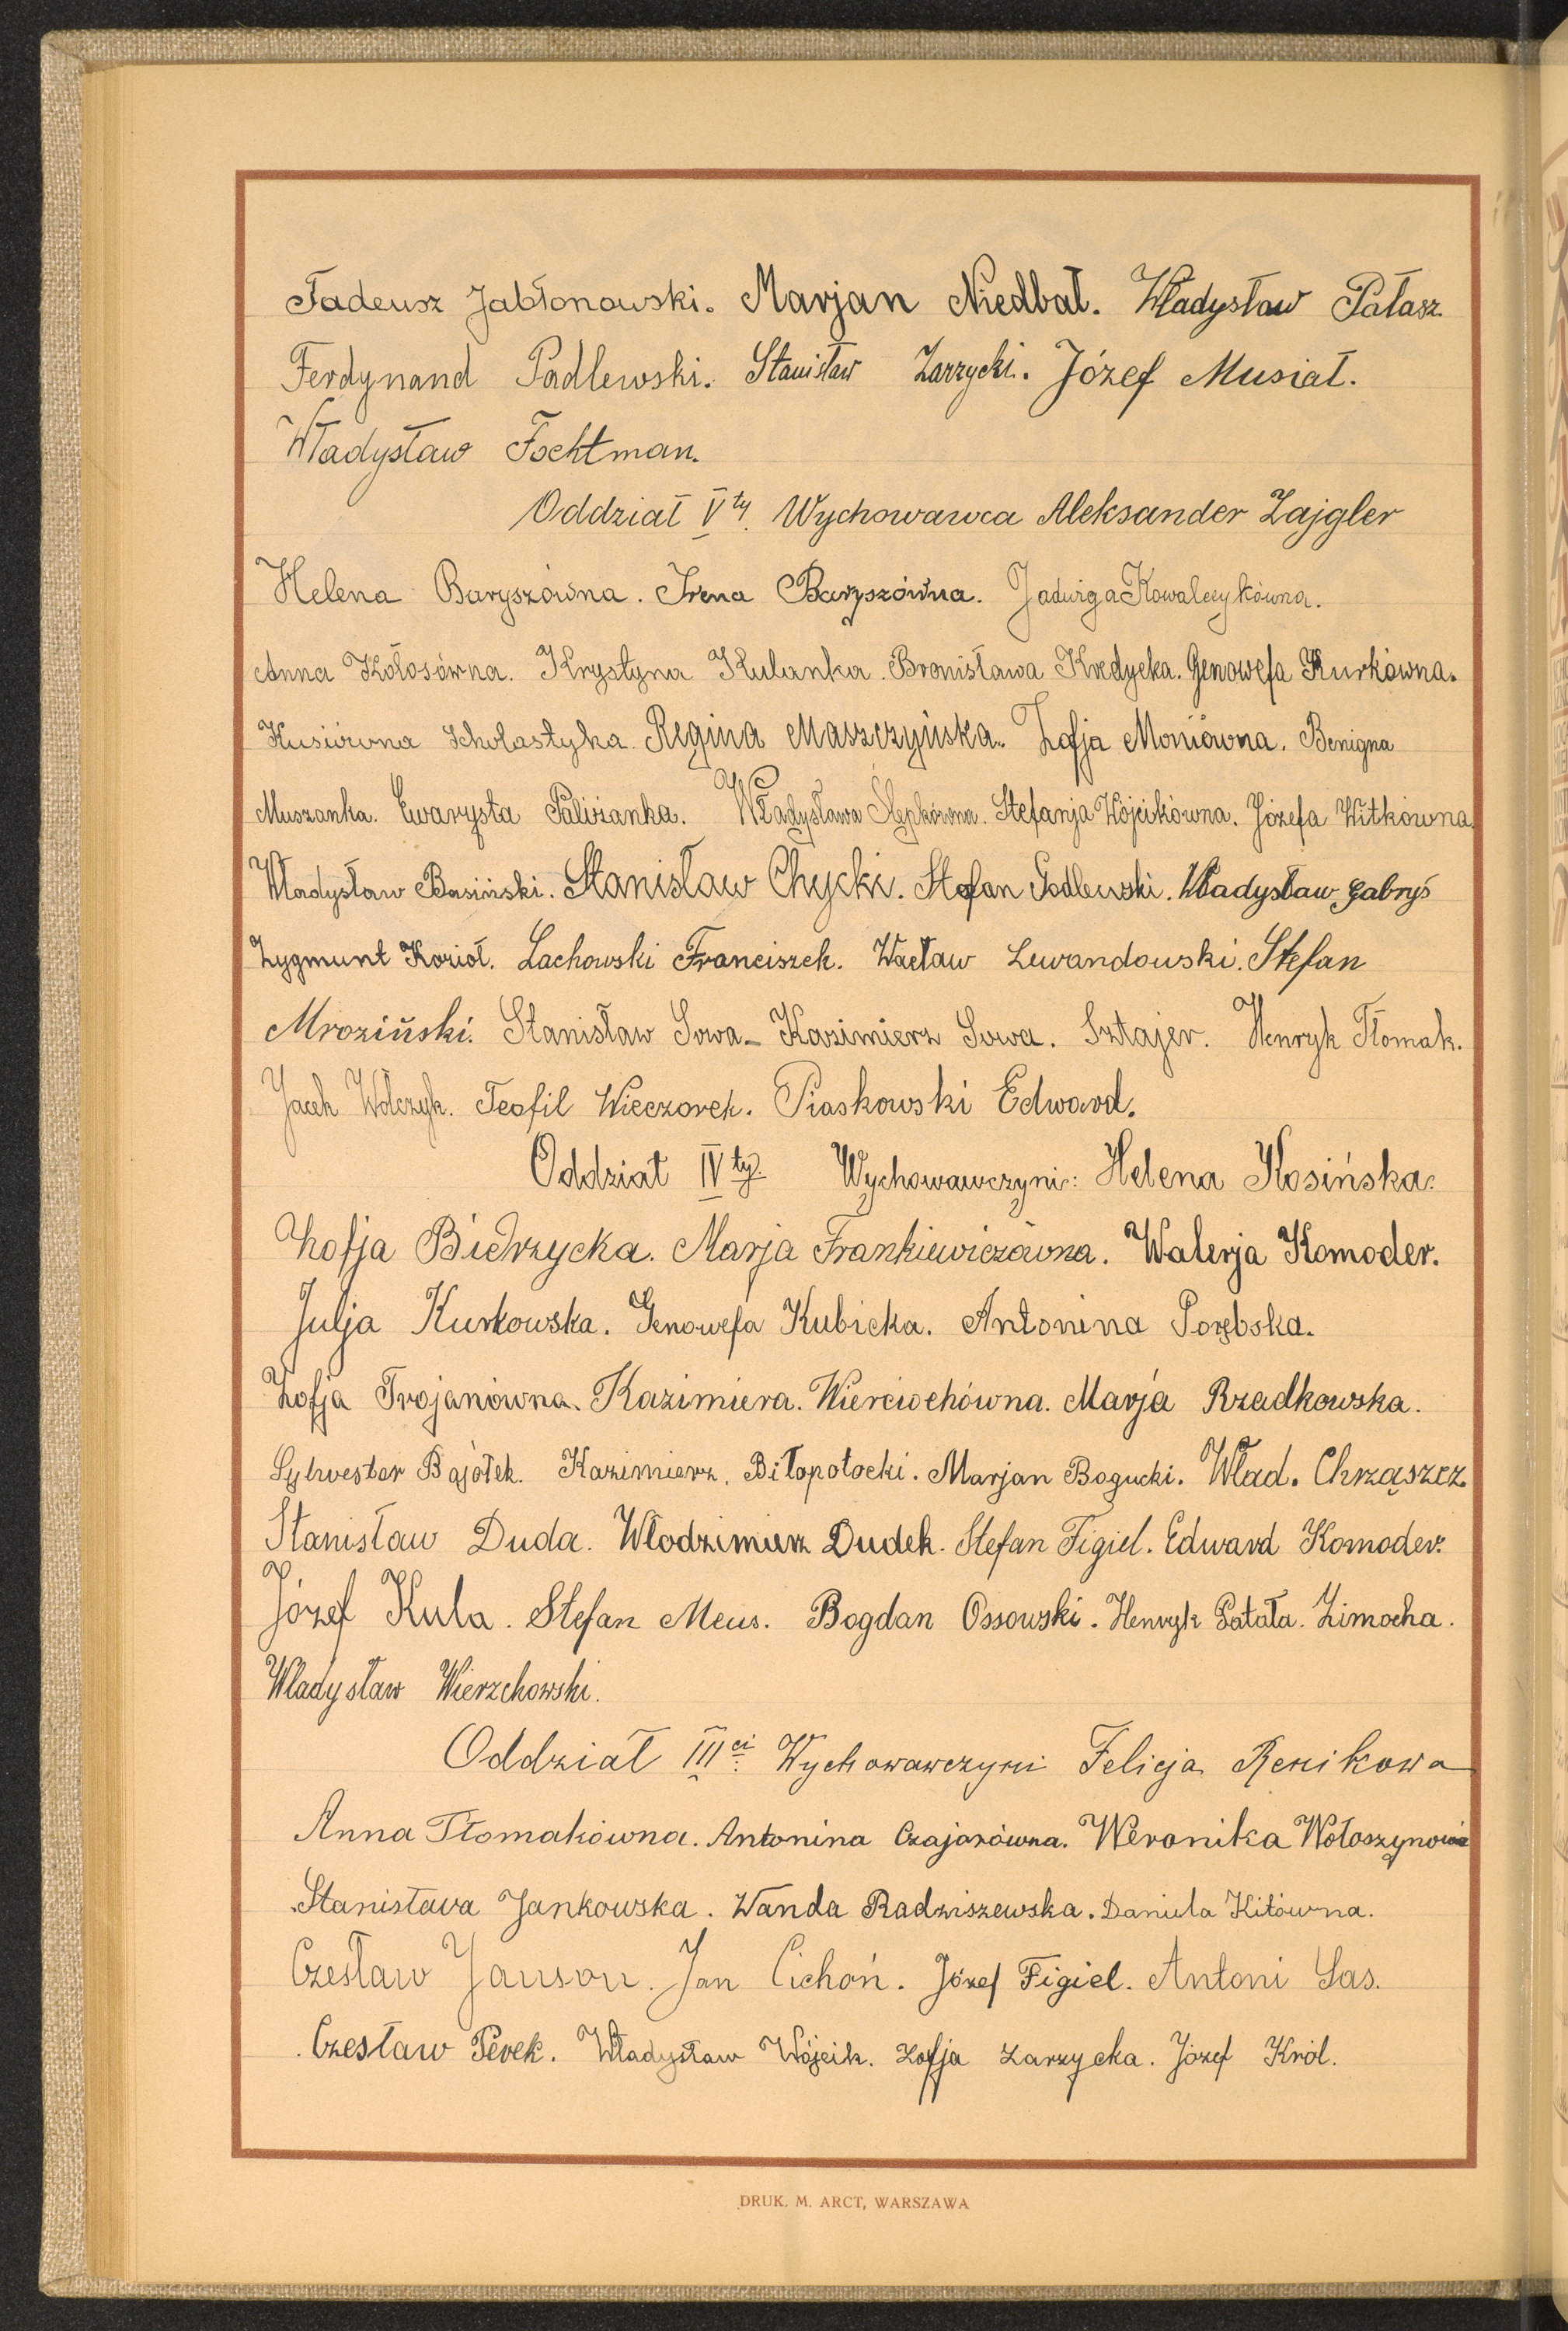 Tadeusz Jabłonowski. Marjan Niedbał. Władysław Pałasz.
Ferdynand Padlewski. Stanisław Zarzycki. Józef Musiał.
Władysław Fochtman.
Oddział V ty. Wychowawca Aleksander Zajgler
Helena Baryszówna. Irena Baryszówna. Jadwiga Kowalczykówna.
Anna Kołosówna. Krystyna Kulanka. Bronisława Kredycka. Genowefa Kurkówna.
Kusiówna Scholastyka. Regina Maszczyńska. Zofja Moniówna. Benigna
Muszanka. Ewarysta Paliżanka. Władysława Ślepkówna. Stefanja Wójcikówna. Józefa Witkówna.
Władysław Basiński. Stanisław Chycki. Stefan Godlewski. Władysław Gabryś
Zygmunt Kozioł. Lachowski Franciszek. Wacław Lewandowski. Stefan
Mroziński. Stanisław Sowa. Kazimierz Sowa. Sztajer. Henryk Tłomak.
Jacek Wólczyk. Teofil Wieczorek. Piaskowski Edward.
Oddział IV ty. Wychowawczyni: Helena Kosińska.
Zofja Biedrzycka. Marja Frankiewiczówna. Walerja Komoder.
Julja Kurkowska. Genowefa Kubicka. Antonina Porębska.
Zofja Trojanówna. Kazimiera. Wierciochówna. Marja Rzadkowska.
Sylwester Bajołek. Kazimierz. Biłopotocki. Marjan Bogucki. Wład. Chrząszcz.
Stanisław Duda. Włodzimierz Dudek. Stefan Figiel. Edward Komoder.
Józef Kula. Stefan Meus. Bogdan Ossowski. Henryk Patała. Zimocha.
Władysław Wierzchowski.
Oddział III ci. Wychowawczyni Felicja Renikowa
Anna Tłomakówna. Antonina Czajorówna. Weronika Wołoszynowia
Stanisława Jankowska. Wanda Radziszewska. Daniela Kitówna.
Czesław Janson. Jan Cichoń. Józef Figiel. Antoni Sas.
Czesław Perek. Władysław Wójcik. Zofja Zarzycka. Józef Król.
DRUK. M. ARCT, WARSZAWA